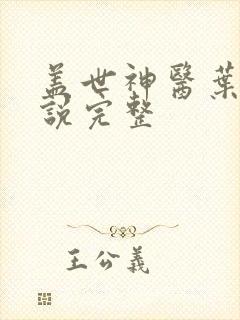 盖世神醫葉
説完整
王公義